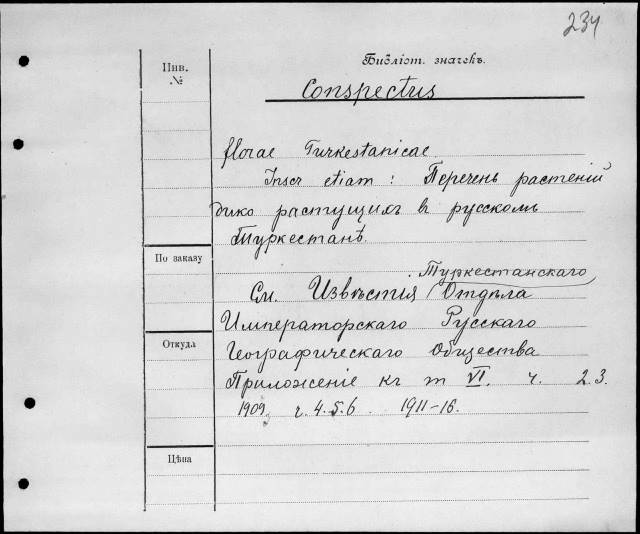 234
Инв. №
Библіот. значекъ.
Conspectus
florae Turkestanicae
Inscr etiam : Перечень растеній
дико растущихъ въ русскомъ
Туркестанѣ.
По заказу
Туркестанскаго
См. Извѣстія Отдѣла
Императорскаго Русскаго
Откуда
Географическаго Общества
Приложеніе къ т VI. ч. 2.3.
1909, ч. 4.5.6. 1911-16.
Цѣна